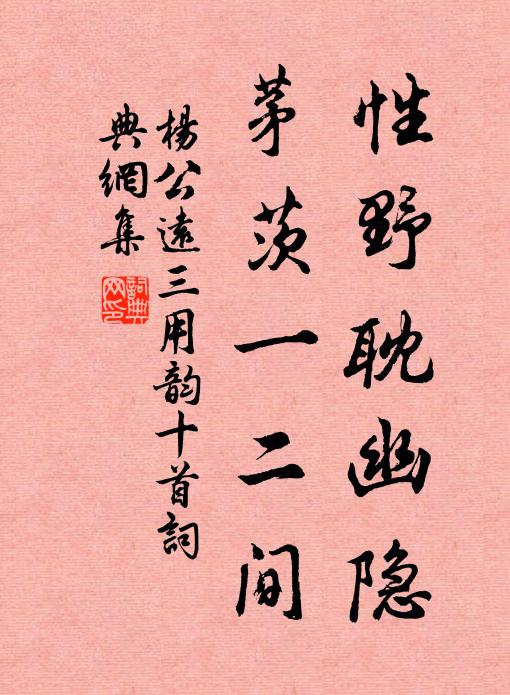 性野耽幽隐
茅茨一二间
杨公远三用韵十首詞
典網集
詞典
网印